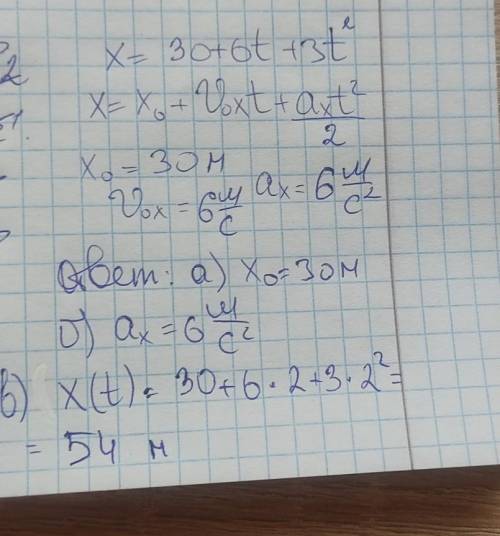 x = 30+6t+3t²
x = x₀ + v₀ₓt + aₓt²/2
x₀ = 30 м
v₀ₓ = 6 м/с aₓ = 6 м/с²
Ответ: а) x₀ = 30 м
б) aₓ = 6 м/с²
в) x(t) = 30+6·2+3·2² =
= 54 м